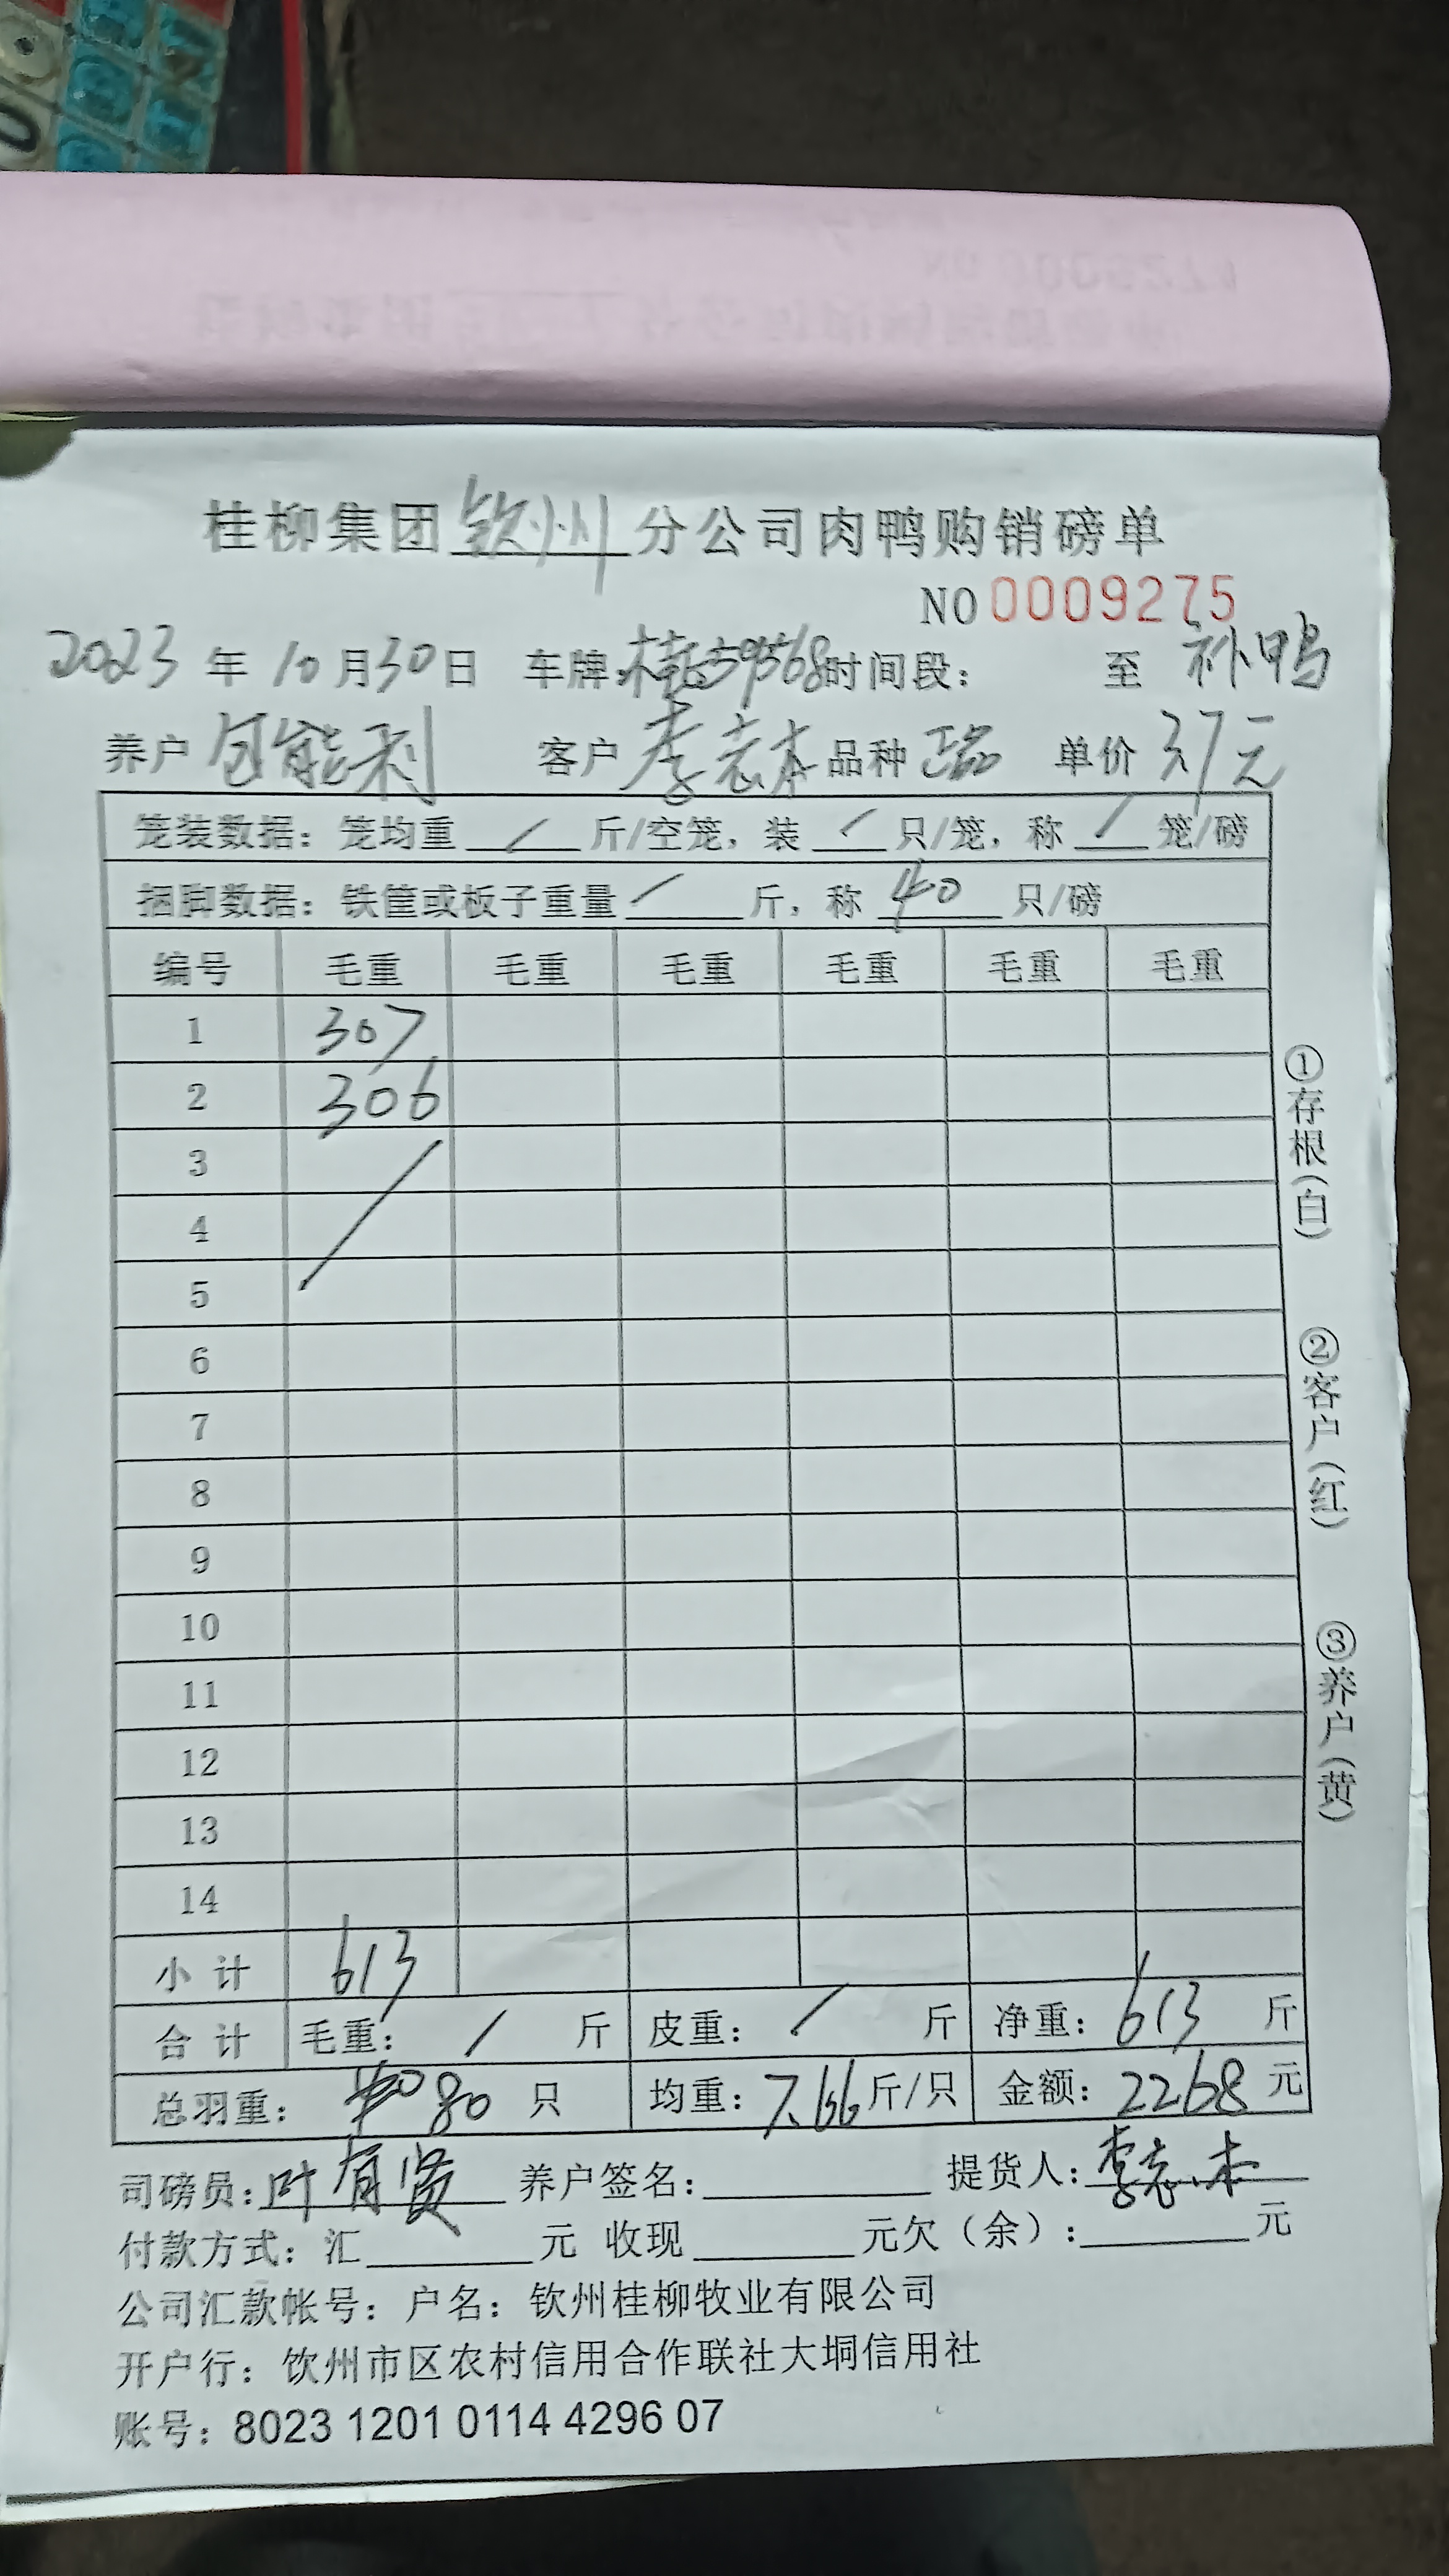 桂柳集团钦州分公司肉鸭购销磅单
NO 0009275
2023年10月30日 车牌: 时间段: 至 补鸭
养户 包能利 客户 李志本 品种 正品 单价 3.7元
笼装数据: 笼均重 / 斤/空笼, 装 / 只/笼, 称 / 笼/磅
捆脚数据: 铁筐或板子重量 / 斤, 称 40 只/磅
编号 毛重 毛重 毛重 毛重 毛重 毛重
1 307
2 306
3
4
5
6
7
8
9
10
11
12
13
14
小计 613
合计 毛重: / 斤 皮重: / 斤 净重: 613 斤
总羽重: 80 只 均重: 7.66 斤/只 金额: 2268 元
司磅员: 叶有贤 养户签名: 提货人: 李志本
付款方式: 汇 元 收现 元欠(余): 元
公司汇款帐号: 户名: 钦州桂柳牧业有限公司
开户行: 饮州市区农村信用合作联社大垌信用社
账号: 8023 1201 0114 4296 07
①存根(白)
②客户(红)
③养户(黄)